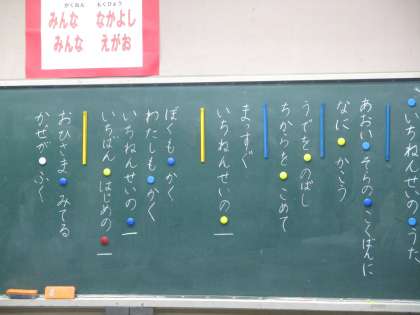 がくねん もくひょう
みんな なかよし
みんな えがお
いちねんせいの うた
あおい そらの こくばんに
なに かこう
うでを のばし
ちからを こめて
まっすぐ
いちねんせいの 一
ぼくも かく
わたしも かく
いちねんせいの 一
いちばん はじめの 一
おひさま みてる
かぜが ふく